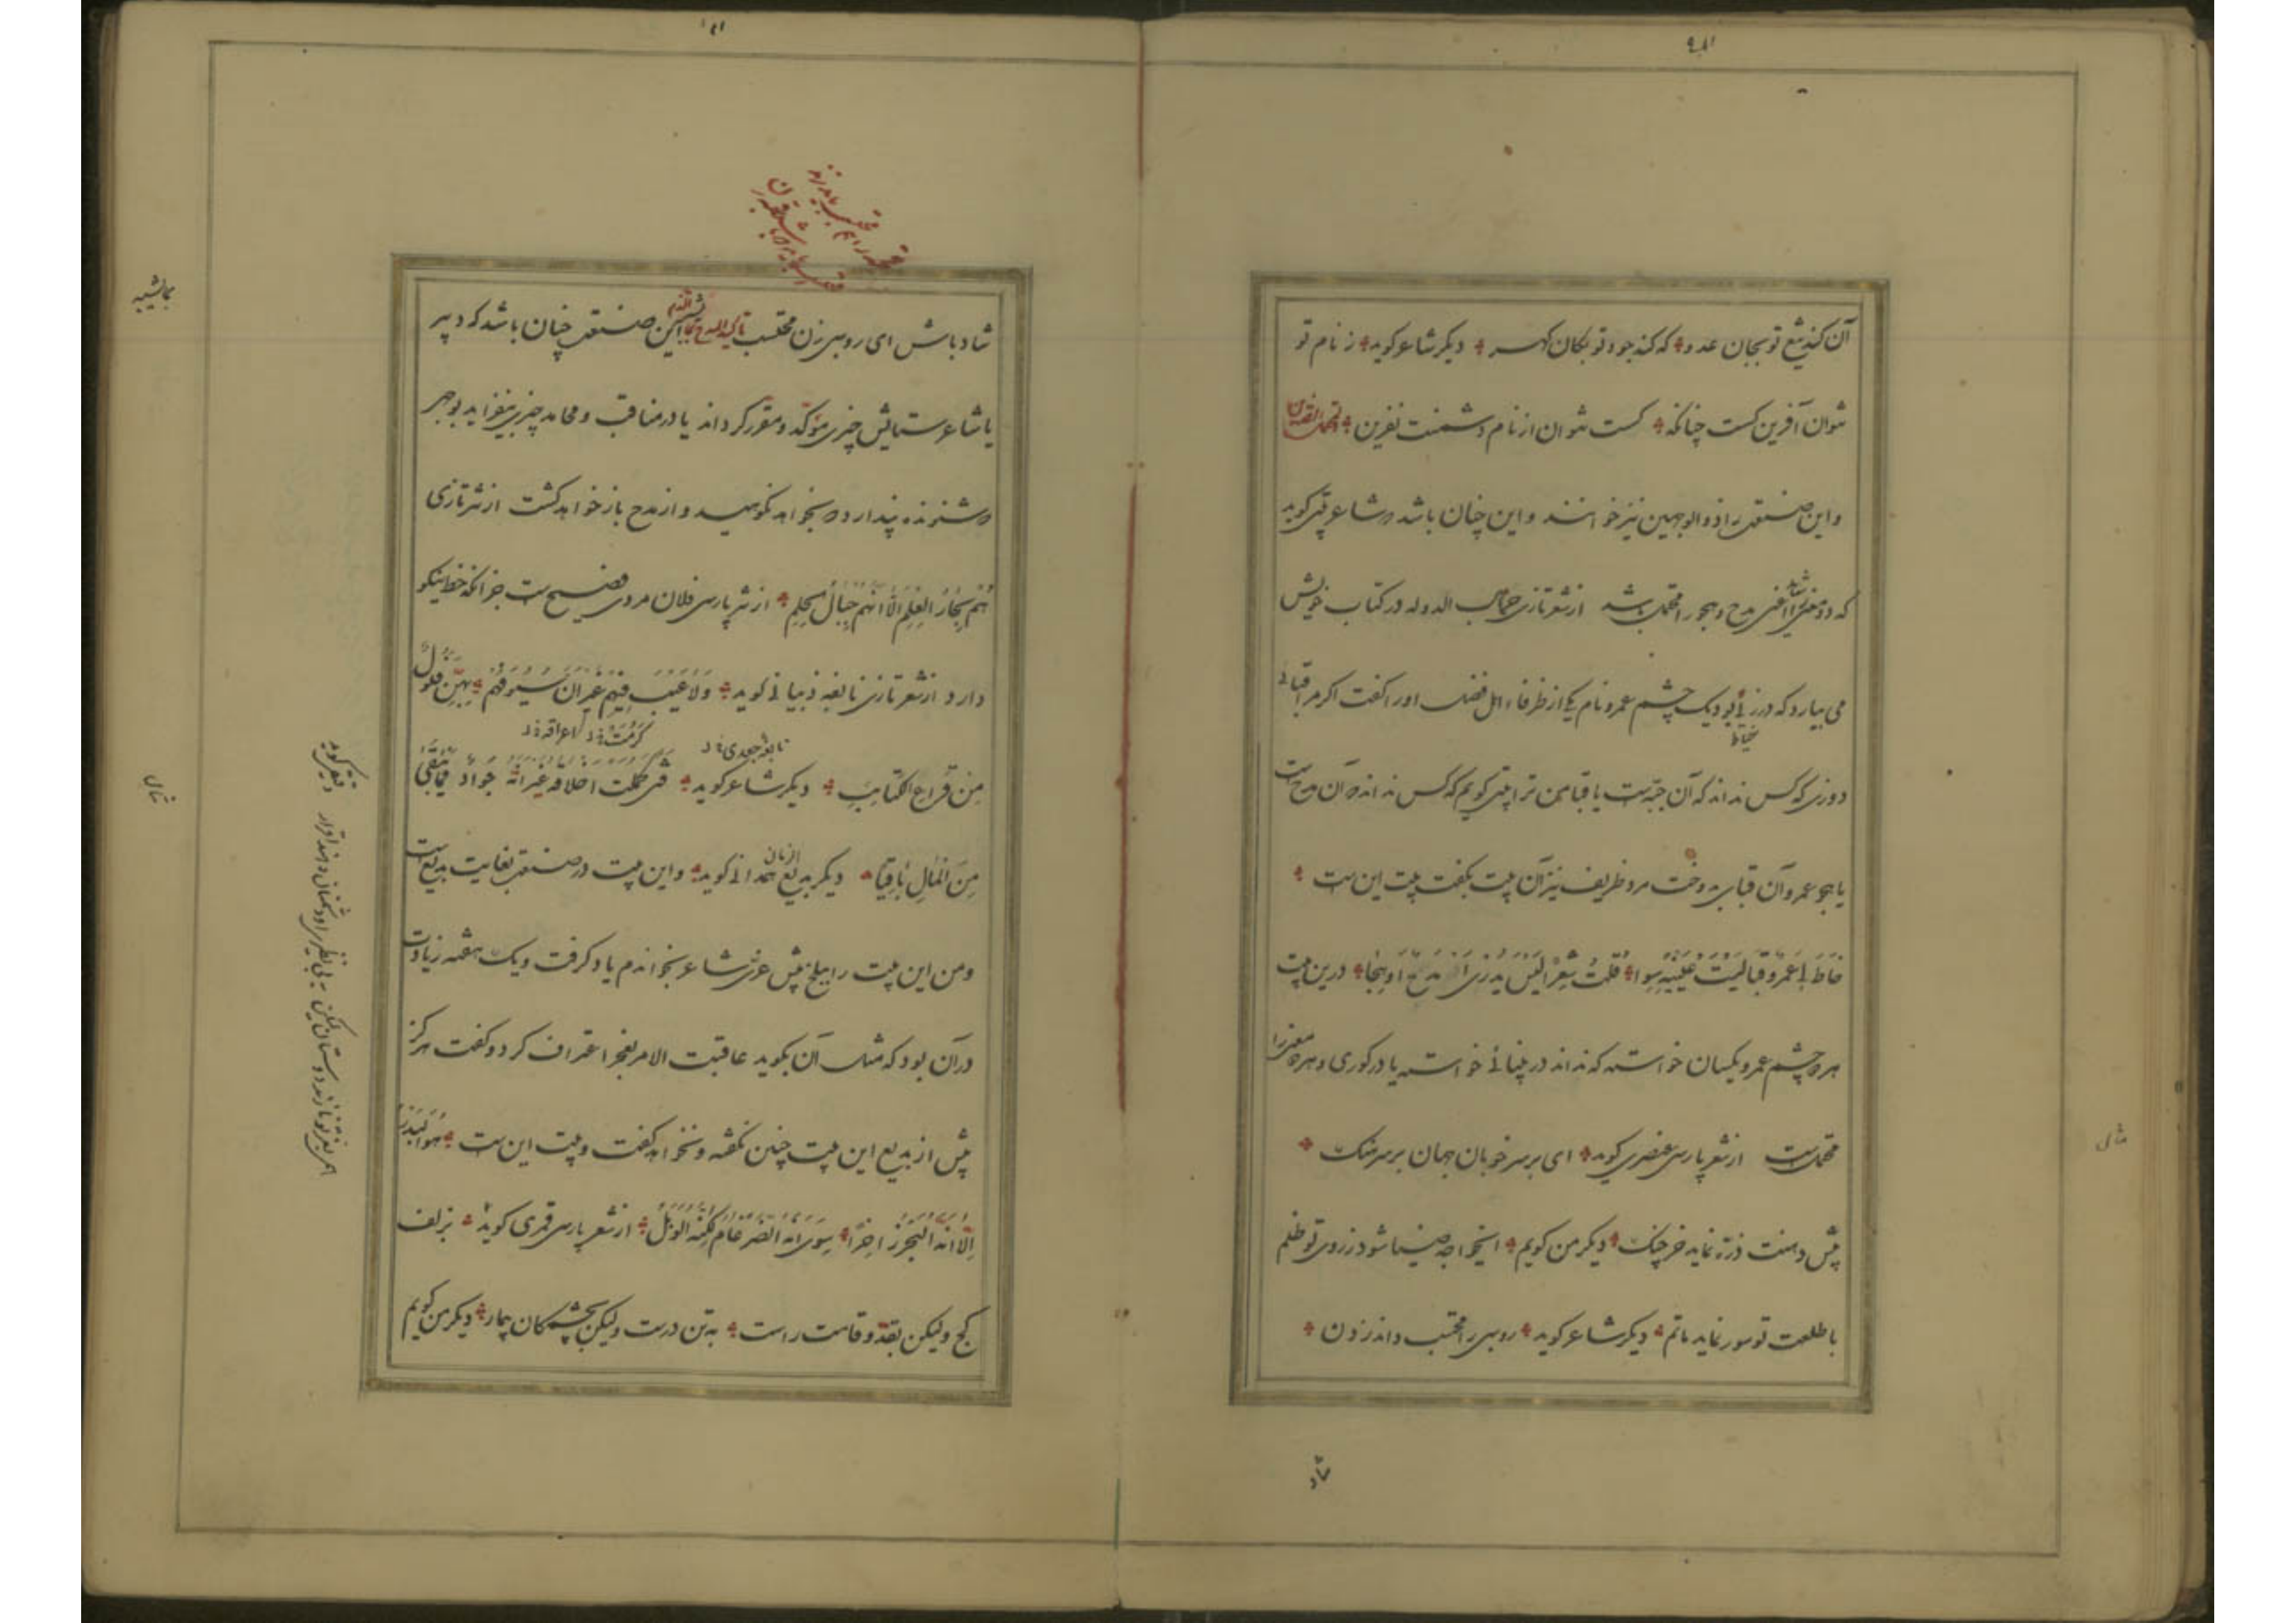 آن کند تیغ تو بجان عدو که کند جود تو بکان گهر دیگر شاعر کوید ز نام تو
نتوان آفرین کست چنانکه کست نتوان از نام دشمنت نفرین
و این صنعت را ذو الوجهین نیز خوانند و این چنان باشد که شاعر بیتی کوید
که دو معنی را شاید معنی مدح و هجو را محتمل باشد از شعر تازی صاحب الدوله در کتاب خویش
می بیارد که درزئی بود یک چشم عمرو نام یکی از ظرفاء اهل فضل او را کفت اکر مرا قبائی
خیاط
دوزی که کس نداند که آن جبه است یا قبا من ترا بیتی کویم که کس نداند که آن مدح است
یا هجو عمرو آن قبا بدوخت مرد ظریف نیز آن بیت بکفت بیت این است
خَاطَ لِی عَمرٌو قَبَا لَیتَ عَینَیهِ سِوَا قُلتُ شِعرًا لَیسَ یُدرَی اَمَدِیحٌ اَو هِجَا درین بیت
هر دو چشم عمرو یکسان خواسته که نداند در بینائی خواسته یا در کوری و هر دو معنی را
محتمل است از شعر پارسی عنصری کوید ای بر سر خوبان جهان بر سرهنک
پیش دهنت ذره نماید خرچنک دیگر من کویم ای خواجه ضیا شود ز روی تو ظلم
با طلعت تو سور نماید ماتم دیگر شاعر کوید روسبی را محتسب داند زدن
شاد
شاد باش ای روسبی زن محتسب تاکید المدح بما یشبه الذم این صنعت چنان باشد که دبیر
یا شاعر ستایش چیزی مؤکد و مقرر کرداند یا در مناقب و محامد چیزی بیفزاید بوجهی
که شنونده پندارد که بخواهد نکوهید و از مدح باز خواهد کشت از نثر تازی
هُم بِحَارُ العِلمِ اِلّا اَنَّهُم جِبَالُ الحِلمِ از نثر پارسی فلان مردی فصیح است جز آنکه خط نیکو
دارد از شعر تازی نابغه ذبیانی کوید وَلَا عَیبَ فِیهِم غَیرَ اَنَّ سُیُوفَهُم بِهِنَّ فُلُولٌ
نابغه جعدی
مِن قِرَاعِ الکَتَائِبِ دیگر شاعر کوید فَتًی کَمُلَت اَخلَاقُه غَیرَ اَنَّهُ جَوَادٌ فَمَا یُبقِی
مِنَ المَالِ بَاقِیَا دیگر بدیع الزمان همدانی کوید و این بیت در صنعت بغایت بدیع است
و من این بیت را ببلخ پیش غزی شاعر بخواندم یاد کرفت و یک هفته زیادت
در آن بود که مثل آن بکوید عاقبت الامر بعجز اعتراف کرد و کفت هرکز
پیش از بدیع این بیت چنین نکفته و نخواهد کفت و بیت این است هُوَ البَدرُ
اِلّا اَنَّهُ البَحرُ زَاخِرًا سِوَی اَنَّهُ الضِّرغَامُ لٰکِنَّهُ الوَبلُ از شعر پارسی قمری کوید بزلف
کج ولیکن بقد و قامت راست به تن درست ولیکن بچشمکان بیمار دیگر من کویم